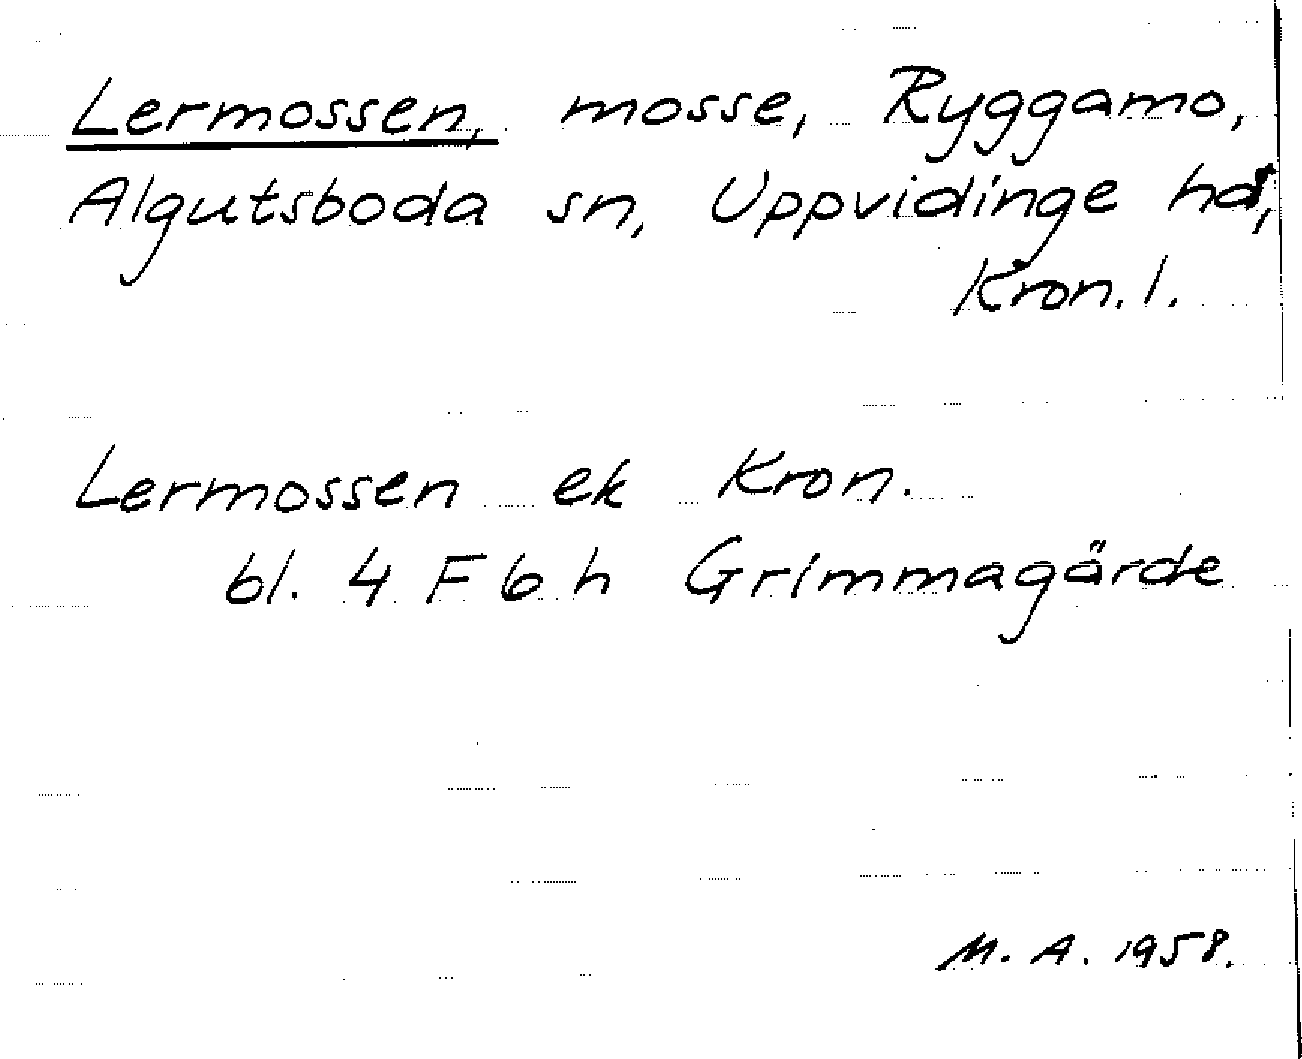 Lermossen, mosse, Ryggamo,
Algutsboda sn, Uppvidinge hd,
Kron. l.
Lermossen ek Kron.
bl. 4 F 6 h Grimmagärde
M. A. 1958.